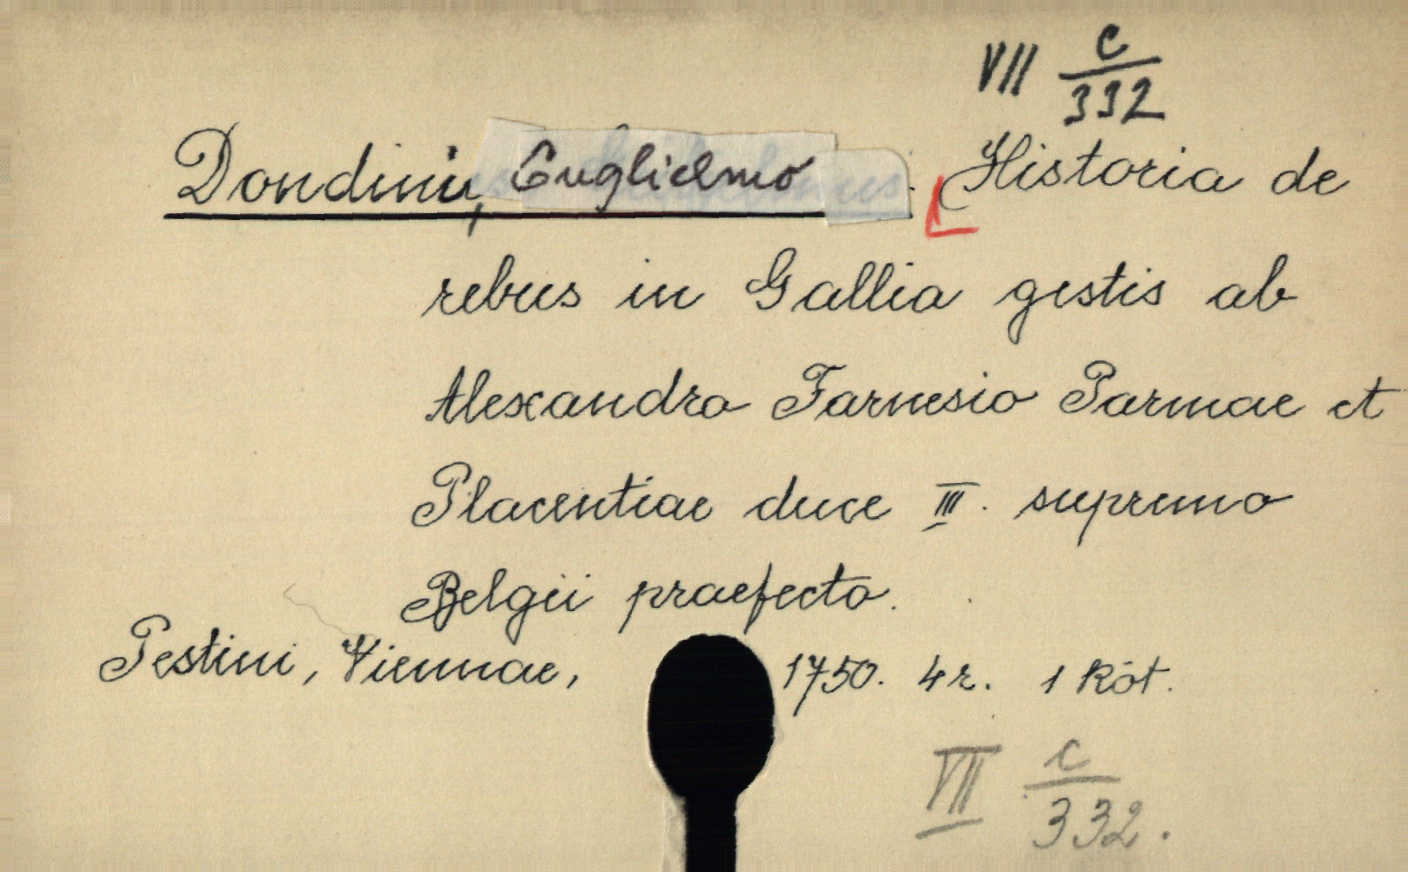 VII c/332
Dondini, Guglielmo Historia de
rebus in Gallia gestis ab
Alexandro Farnesio Parmae et
Placentiae duce III. supremo
Belgii praefecto.
Pestini, Viennae, 1750. 4r. 1 Köt.
VII c/332.